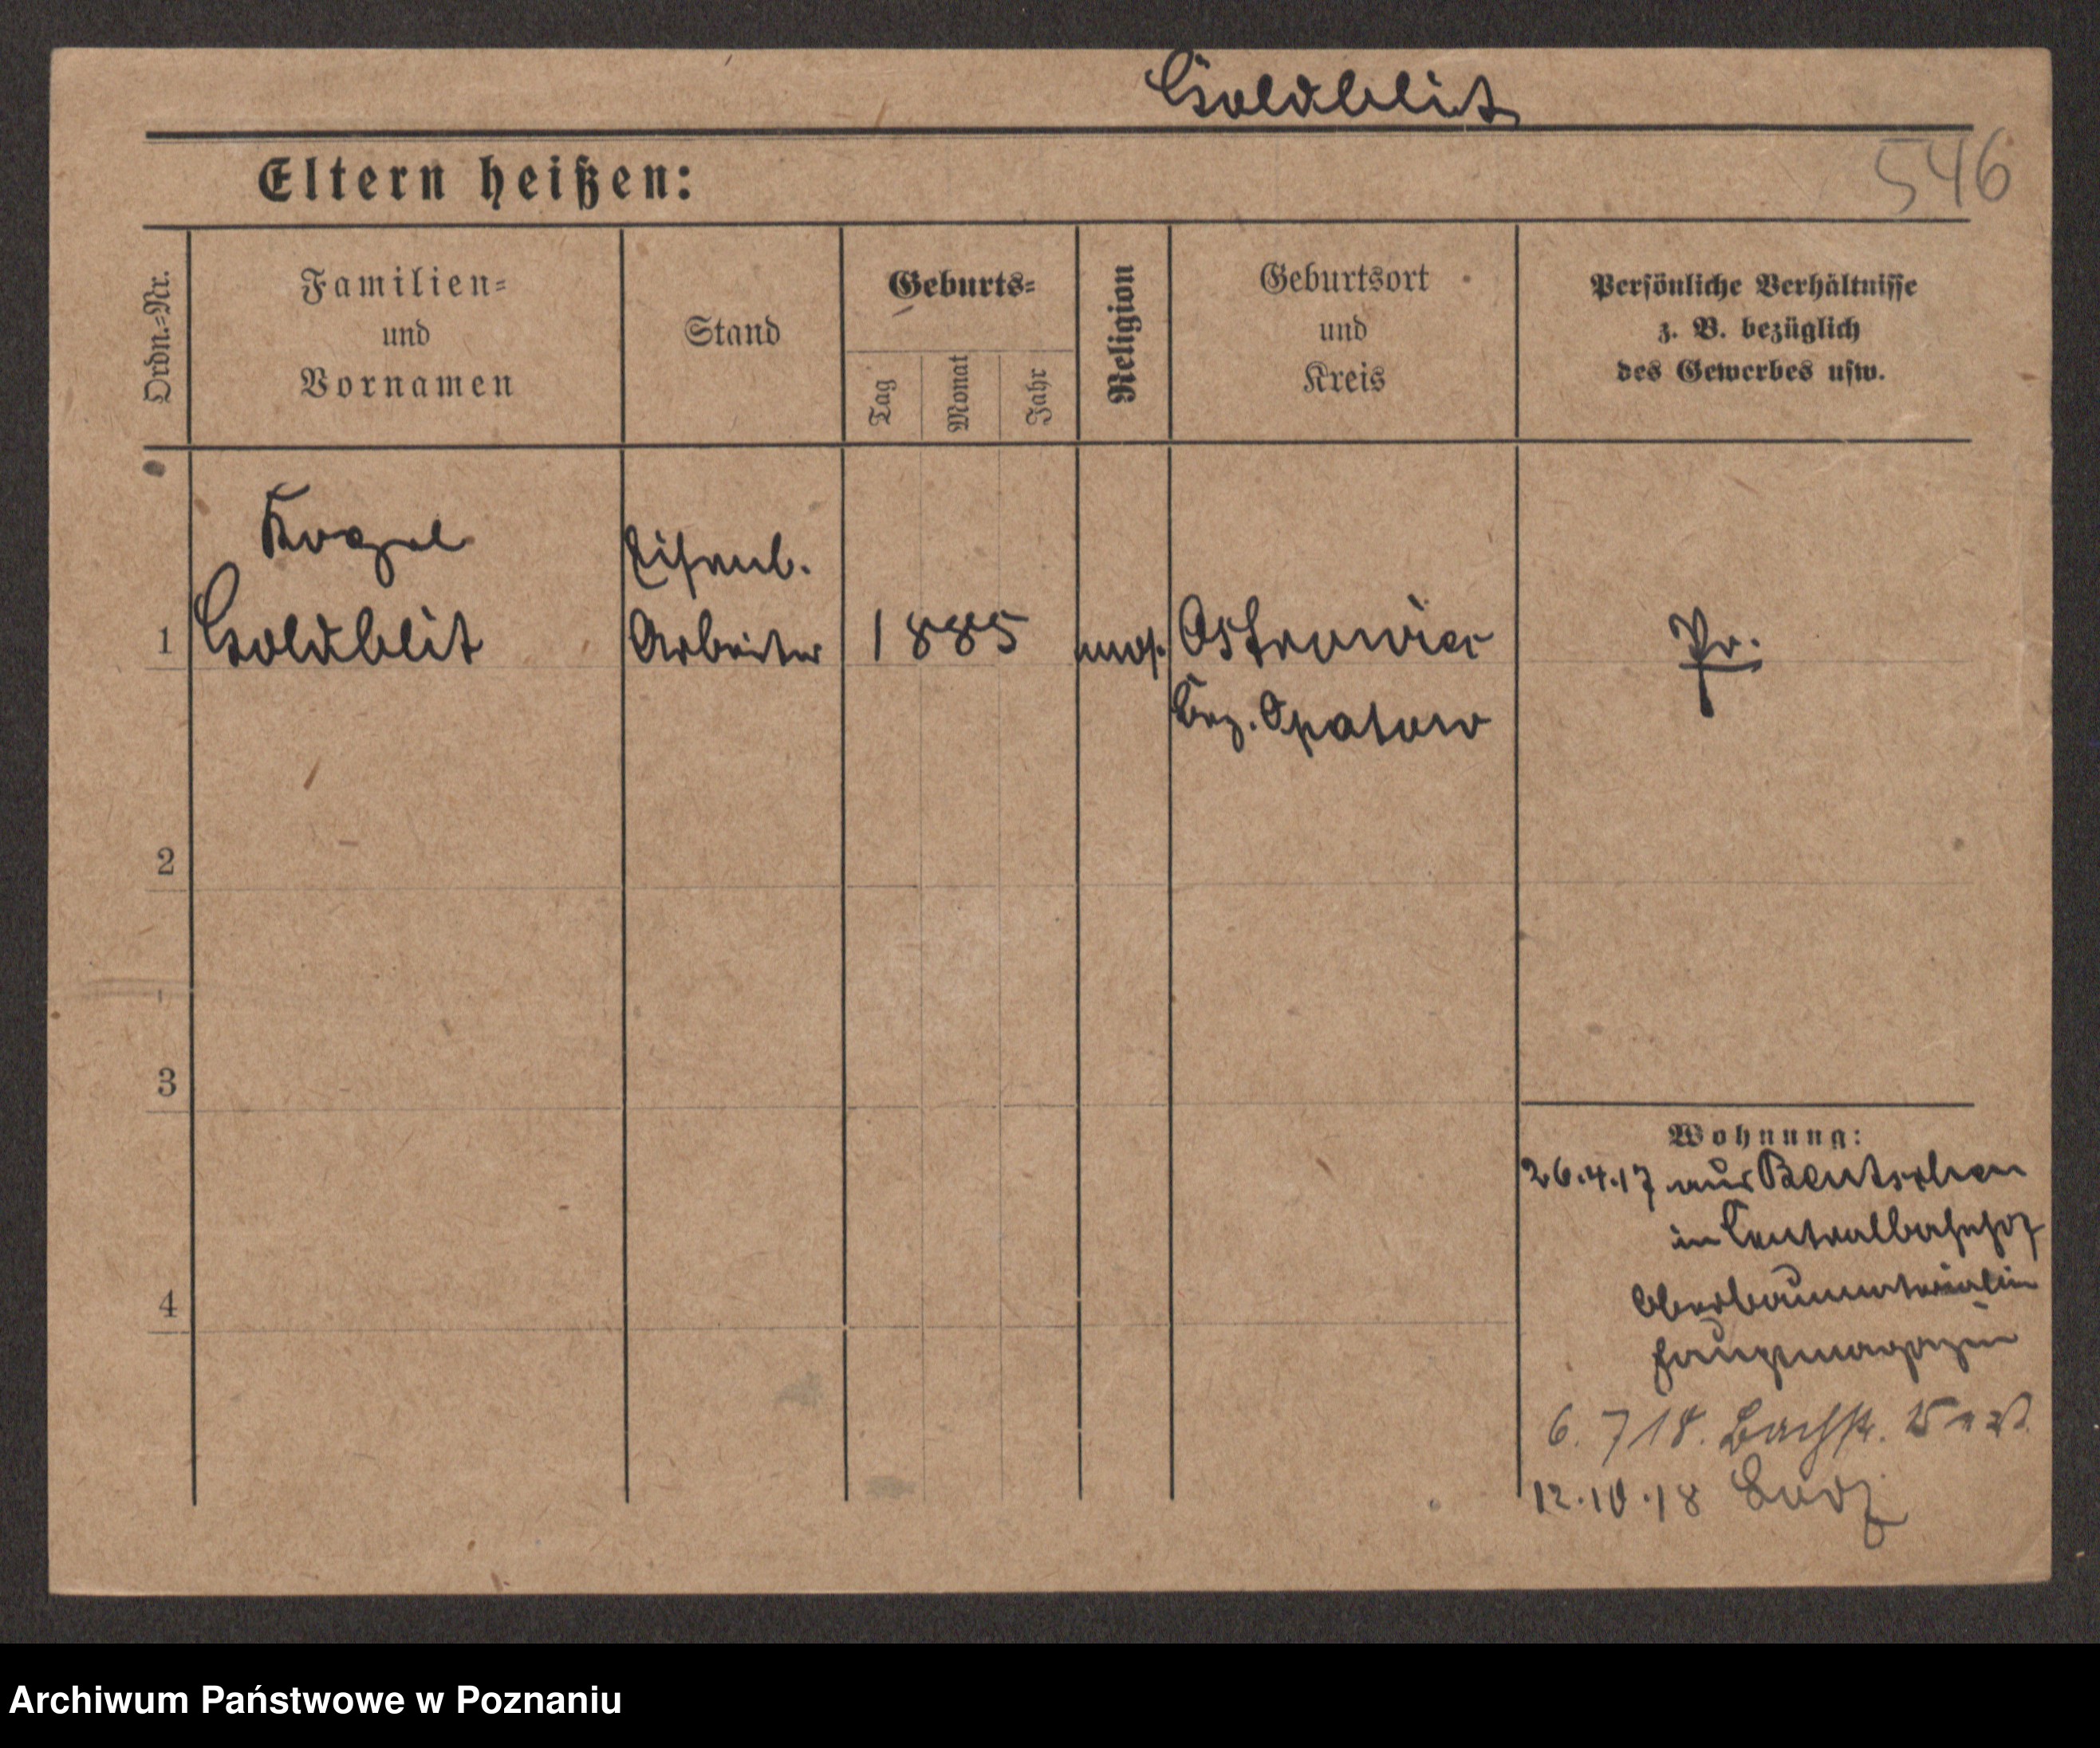 Goldblit
546
Eltern heißen:
Ordn.=Nr.
Familien=
und
Vornamen
Stand
Geburts=
Tag
Monat
Jahr
Religion
Geburtsort
und
Kreis
Persönliche Verhältnisse
z. B. bezüglich
des Gewerbes usw.
Eisenb.
1 Goldblit Arbeiter 1885 mos. Ostrowiec Pr.
Bez. Opatow
2
3
4
Wohnung:
26.4.17 aus Bentschen
in Centralbahnhof
Oberbaumaterialien
Hauptmagazin
6. 7 18. Bachstr.
12.10.18 Lodz
Archiwum Państwowe w Poznaniu